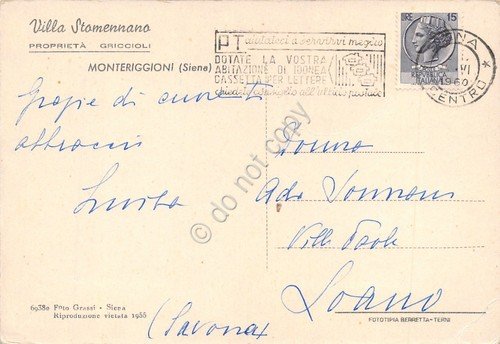 Villa Stomennano
PROPRIETÀ GRICCIOLI
MONTERIGGIONI (Siena)
PT aiutateci a servirvi meglio
DOTATE LA VOSTRA
ABITAZIONE DI IDONEA
CASSETTA PER LETTERE
chiedete consiglio all'ufficio postale
LIRE 15
REPUBBLICA
ITALIANA
SIENA
VI
1960
CENTRO
Grazie di cuore ti
abbraccio
Luisa
Donna
Ada
Villa Isola
Loano
(Savona)
6938e Foto Grassi - Siena
Riproduzione vietata 1955
FOTOTIPIA BERRETTA - TERNI
© do not copy